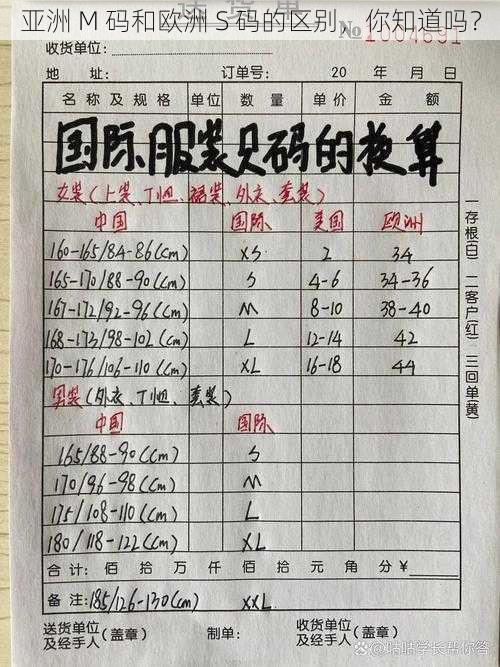 亚洲 M 码和欧洲 S 码的区别，你知道吗？
送货单
1004691
收货单位：
地址： 订单号： 20 年 月 日
名称及规格 单位 数量 单价 金额
国际服装尺码的换算
女装（上装、T恤、裙装、外衣、套装）
中国 国际 美国 欧洲
160-165/84-86(cm) XS 2 34
165-170/88-90(cm) S 4-6 34-36
167-172/92-96(cm) M 8-10 38-40
168-173/98-102(cm) L 12-14 42
170-176/106-110(cm) XL 16-18 44
男装（外衣、T恤、套装）
中国 国际
165/88-90(cm) S
170/96-98(cm) M
175/108-110(cm) L
180/118-122(cm) XL
合计： 佰 拾 万 仟 佰 拾 元 角 分 ¥
备注：185/126-130(cm) XXL
送货单位及经手人（盖章） 收货单位及经手人（盖章）
一存根(白) 二客户(红) 三回单(黄)
@咕咕学长帮你答